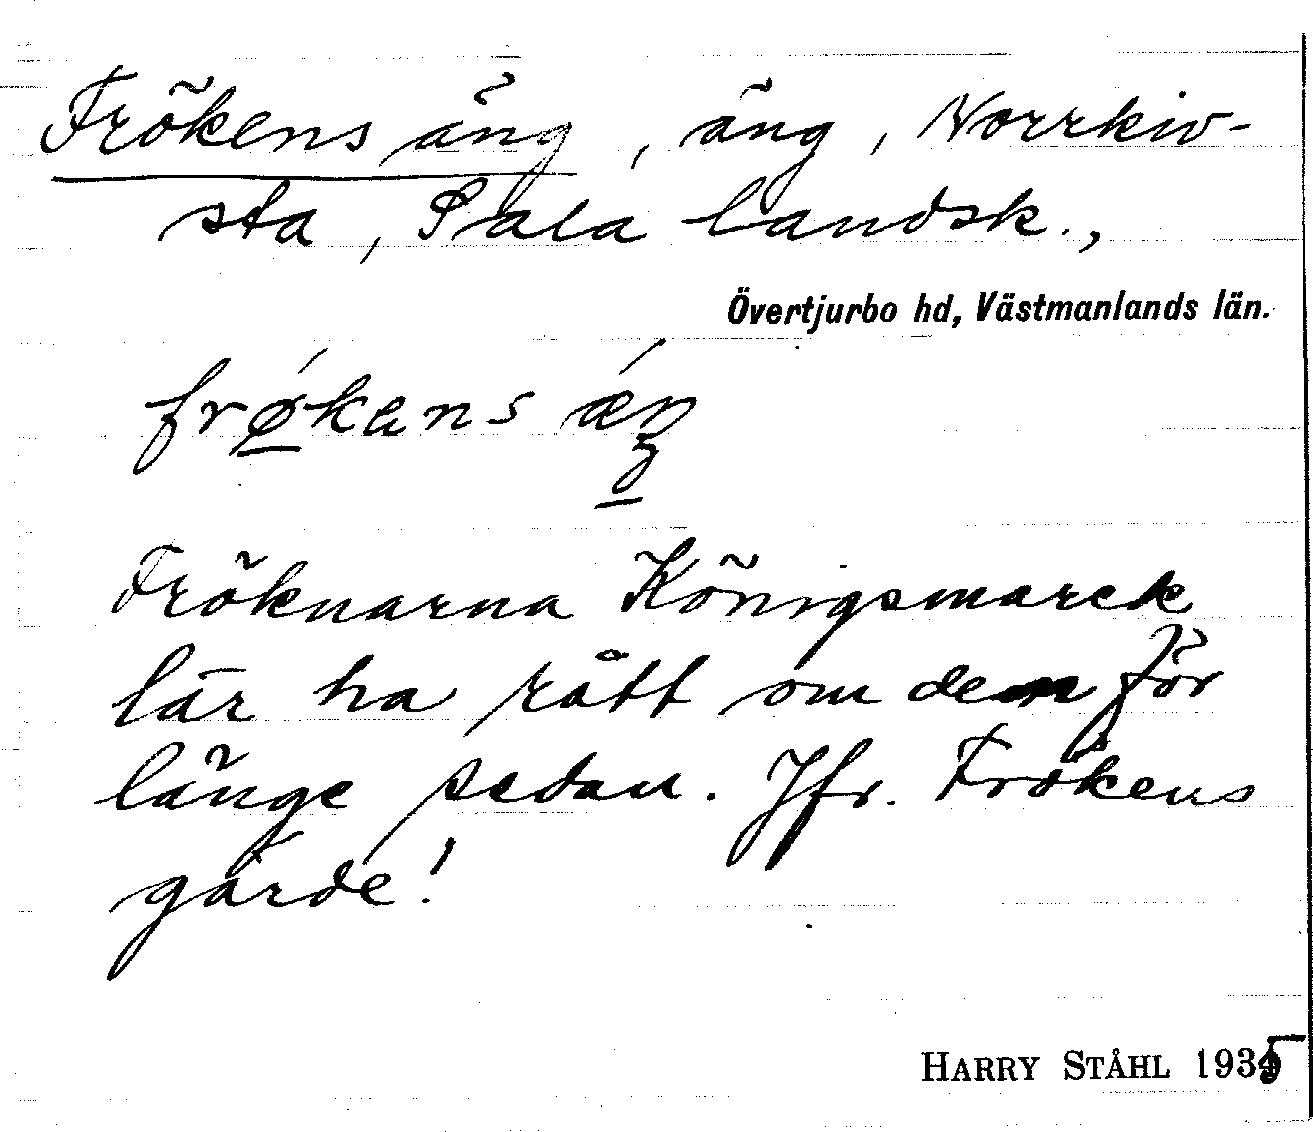 Frökens äng, äng, Norrkiv-
sta, Sala landsk.,
Övertjurbo hd, Västmanlands län.
frǿ̲kans ǽŋ̲
Fröknarna Königsmarck
lär ha rått om den för
länge sedan. Jfr. Frökens
gärde!
HARRY STÅHL 1935